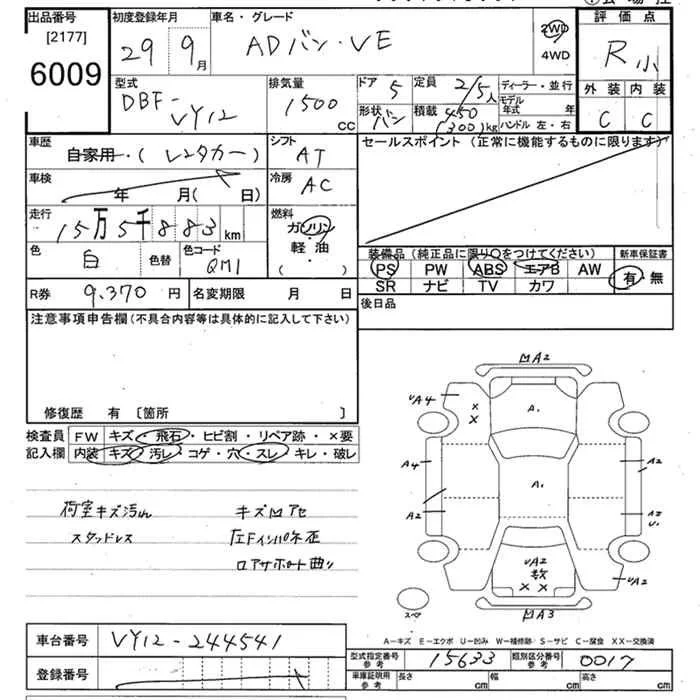 出品番号
[2177]
6009
初度登録年月
29 9月
車名・グレード
ADバン・VE
2WD
4WD
評価点
R小
外装 内装
C C
型式
DBF-
VY12
排気量
1500
CC
ドア 5
形状 バン
定員 2/5人
積載 450
(300)kg
ディーラー・並行
モデル年式 年
ハンドル 左・右
車歴
自家用・(レンタカー)
シフト
AT
車検
年 月( 日)
冷房
AC
走行
15万5千883km
燃料
ガソリン
軽油
( )
色
白
色替
色コード
QM1
セールスポイント (正常に機能するものに限ります)
装備品 (純正品に限り○をつけてください)
新車保証書
PS PW ABS エアB AW
SR ナビ TV カワ
有・無
R券 9,370円
名変期限 月 日
後日品
注意事項申告欄 (不具合内容等は具体的に記入して下さい)
修復歴 有 〔箇所 〕
検査員
記入欄
FW キズ・飛石・ヒビ割・リペア跡・×要
内装 キズ・汚レ・コゲ・穴・スレ・キレ・破レ
荷室キズ汚れ
スタッドレス
キズ凹アセ
左Fインパネ歪
ロアサポート曲り
凹A2
UA4
×
×
A1
A4
A2
A1
A2
A2
U1
UA2
数
××
UA2
スペア
凹A3
A―キズ E―エクボ U―凹み W―補修跡 S―サビ C―腐食 XX―交換済
車台番号
VY12-244541
登録番号
型式指定番号
参考
15633
類別区分番号
参考
0017
車庫証明用
参考
長さ cm
幅 cm
高さ cm